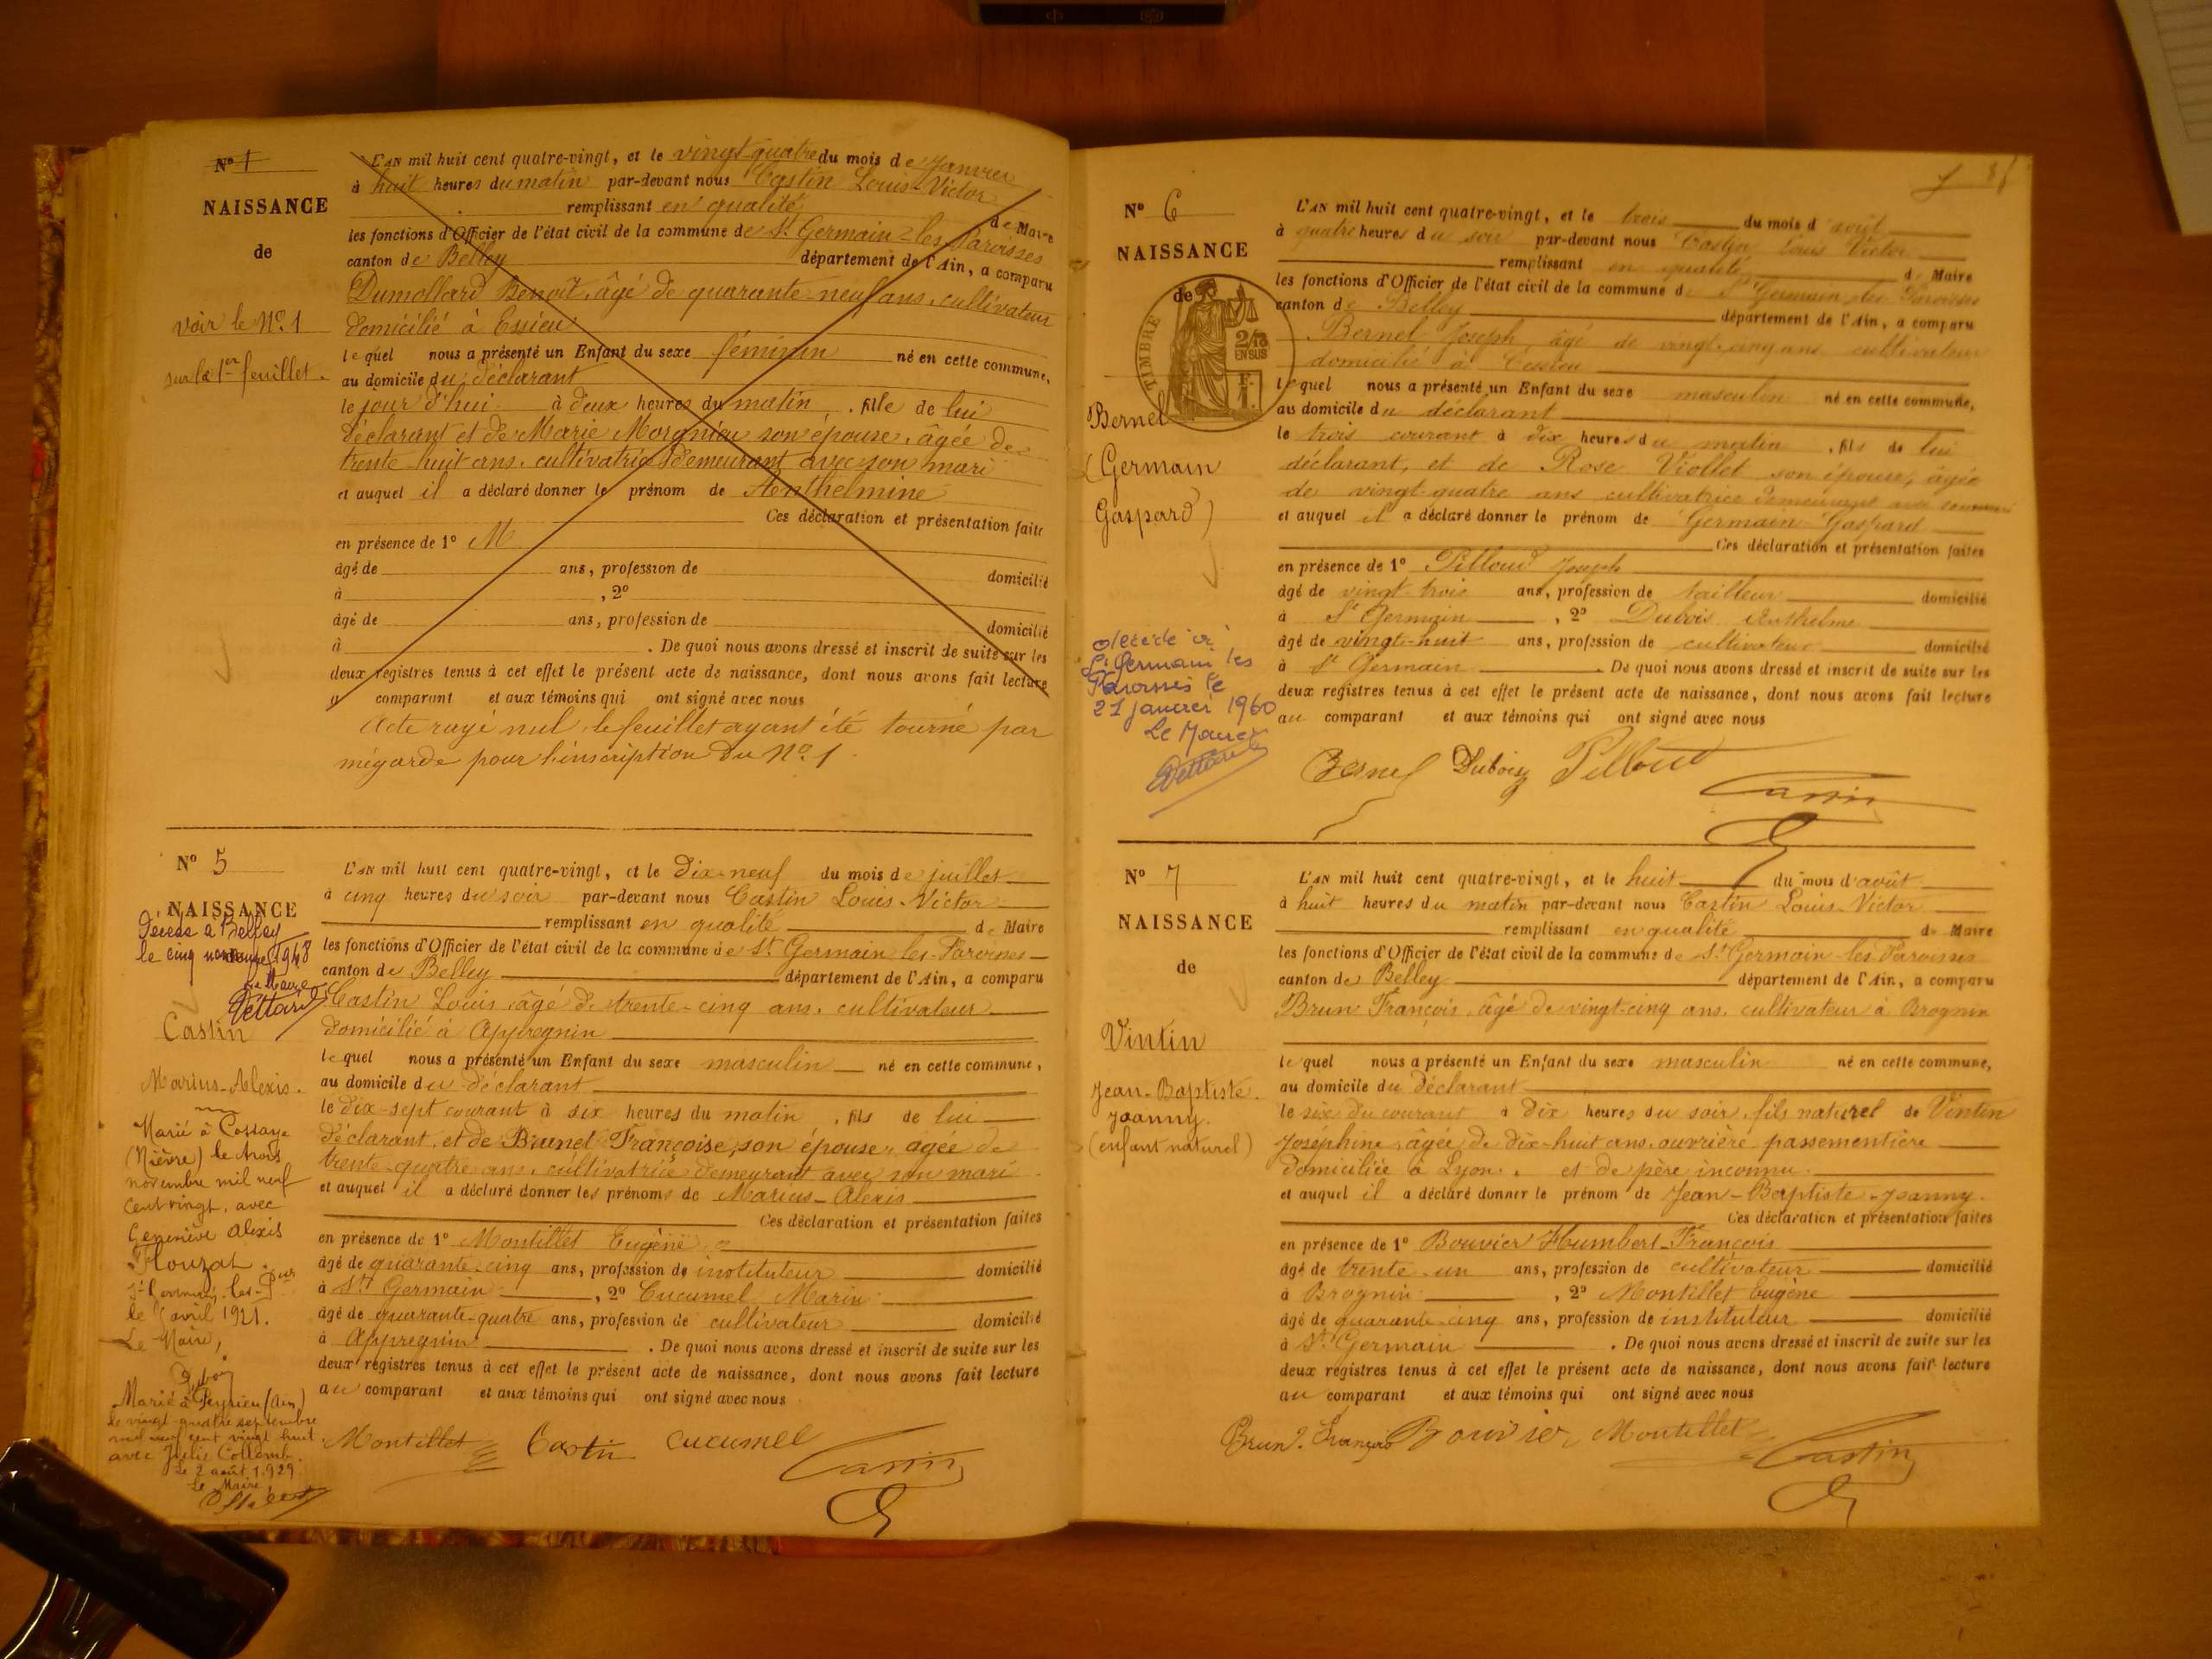 Nº 1
NAISSANCE
de
voir le Nº 1
sur le 1er feuillet.
L'AN mil huit cent quatre-vingt, et le vingt-quatre du mois de Janvier
à huit heures du matin par-devant nous Castin Louis-Victor
remplissant en qualité de Maire
les fonctions d'Officier de l'état civil de la commune de St Germain-les-Paroisses
canton de Belley département de l'Ain, a comparu
Dumollard Benoît, âgé de quarante-neuf ans, cultivateur
domicilié à Essieu
lequel nous a présenté un Enfant du sexe féminin né en cette commune,
au domicile du déclarant
le jour d'hui à deux heures du matin, fille de lui
déclarant et de Marie Morgnieu son épouse, âgée de
trente huit ans, cultivatrice demeurant avec son mari
et auquel il a déclaré donner le prénom de Anthelmine
Ces déclaration et présentation faite
en présence de 1º M
âgé de ans, profession de domicilié
à , 2º
âgé de ans, profession de domicilié
à . De quoi nous avons dressé et inscrit de suite sur les
deux registres tenus à cet effet le présent acte de naissance, dont nous avons fait lecture
a comparant et aux témoins qui ont signé avec nous
Acte rayé nul, le feuillet ayant été tourné par
mégarde pour l'inscription du Nº 1.
Nº 5
NAISSANCE
Décédé à Belley
le cinq novembre 1948
Le Maire
Castin
Marius-Alexis.
Marié à Cossaye
(Nièvre) le trois
novembre mil neuf
cent vingt, avec
Geneviève Alexis
St Germain-les-Pses
le avril 1921.
Le Maire,
Dubois
Marié à Peyrieu (Ain)
le vingt-quatre septembre
mil neuf cent vingt huit
avec Julie Collomb.
Le 2 août 1929
Le Maire,
L'AN mil huit cent quatre-vingt, et le Dix-neuf du mois de juillet
à cinq heures du soir par-devant nous Castin Louis-Victor
remplissant en qualité de Maire
les fonctions d'Officier de l'état civil de la commune de St Germain les-Paroisses
canton de Belley département de l'Ain, a comparu
Castin Louis, âgé de trente-cinq ans, cultivateur
domicilié à Appregnin
lequel nous a présenté un Enfant du sexe masculin né en cette commune,
au domicile du déclarant
le dix-sept courant à six heures du matin, fils de lui
déclarant, et de Brunet Françoise, son épouse, agée de
trente-quatre ans, cultivatrice demeurant avec son mari
et auquel il a déclaré donner les prénoms de Marius-Alexis
Ces déclaration et présentation faites
en présence de 1º Montillet Eugène
âgé de quarante-cinq ans, profession de instituteur domicilié
à St Germain , 2º Cucumel Marin
âgé de quarante-quatre ans, profession de cultivateur domicilié
à Appregnin . De quoi nous avons dressé et inscrit de suite sur les
deux registres tenus à cet effet le présent acte de naissance, dont nous avons fait lecture
au comparant et aux témoins qui ont signé avec nous
Montillet Castin Cucumel Castin
Nº 6
NAISSANCE
de
TIMBRE
2/10
EN SUS
Bernel
(Germain
Gaspard)
décédé à
St Germain les
Paroisses le
21 janvier 1960
Le Maire
L'AN mil huit cent quatre-vingt, et le trois du mois d'août
à quatre heures du soir par-devant nous Castin Louis Victor
remplissant en qualité de Maire
les fonctions d'Officier de l'état civil de la commune de St Germain les Paroisses
canton de Belley département de l'Ain, a comparu
Bernel Joseph, âgé de vingt-cinq ans cultivateur
domicilié à Essieu
lequel nous a présenté un Enfant du sexe masculin né en cette commune,
au domicile du déclarant
le trois courant à dix heures du matin, fils de lui
déclarant, et de Rose Viollet son épouse, âgée
de vingt-quatre ans cultivatrice demeurant avec son mari
et auquel il a déclaré donner le prénom de Germain Gaspard
Ces déclaration et présentation faites
en présence de 1º Pilloud Joseph
âgé de vingt-trois ans, profession de tailleur domicilié
à St Germain , 2º Dubois Anthelme
âgé de vingt-huit ans, profession de cultivateur domicilié
à St Germain . De quoi nous avons dressé et inscrit de suite sur les
deux registres tenus à cet effet le présent acte de naissance, dont nous avons fait lecture
au comparant et aux témoins qui ont signé avec nous
Bernel Dubois Pilloud
Castin
Nº 7
NAISSANCE
de
Vintin
Jean-Baptiste
Joanny.
(enfant naturel)
L'AN mil huit cent quatre-vingt, et le huit du mois d'août
à huit heures du matin par-devant nous Castin Louis-Victor
remplissant en qualité de Maire
les fonctions d'Officier de l'état civil de la commune de St Germain-les-Paroisses
canton de Belley département de l'Ain, a comparu
Brun François, âgé de vingt-cinq ans, cultivateur à Brognin
lequel nous a présenté un Enfant du sexe masculin né en cette commune,
au domicile du déclarant
le six du courant à dix heures du soir, fils naturel de Vintin
Joséphine, âgée de dix-huit ans, ouvrière passementière
domiciliée à Lyon, et de père inconnu.
et auquel il a déclaré donner le prénom de Jean-Baptiste-Joanny.
Ces déclaration et présentation faites
en présence de 1º Bouvier Humbert-François
âgé de trente-un ans, profession de cultivateur domicilié
à Brognin , 2º Montillet Eugène
âgé de quarante-cinq ans, profession de instituteur domicilié
à St Germain . De quoi nous avons dressé et inscrit de suite sur les
deux registres tenus à cet effet le présent acte de naissance, dont nous avons fait lecture
au comparant et aux témoins qui ont signé avec nous
Brun François Bouvier Montillet Castin